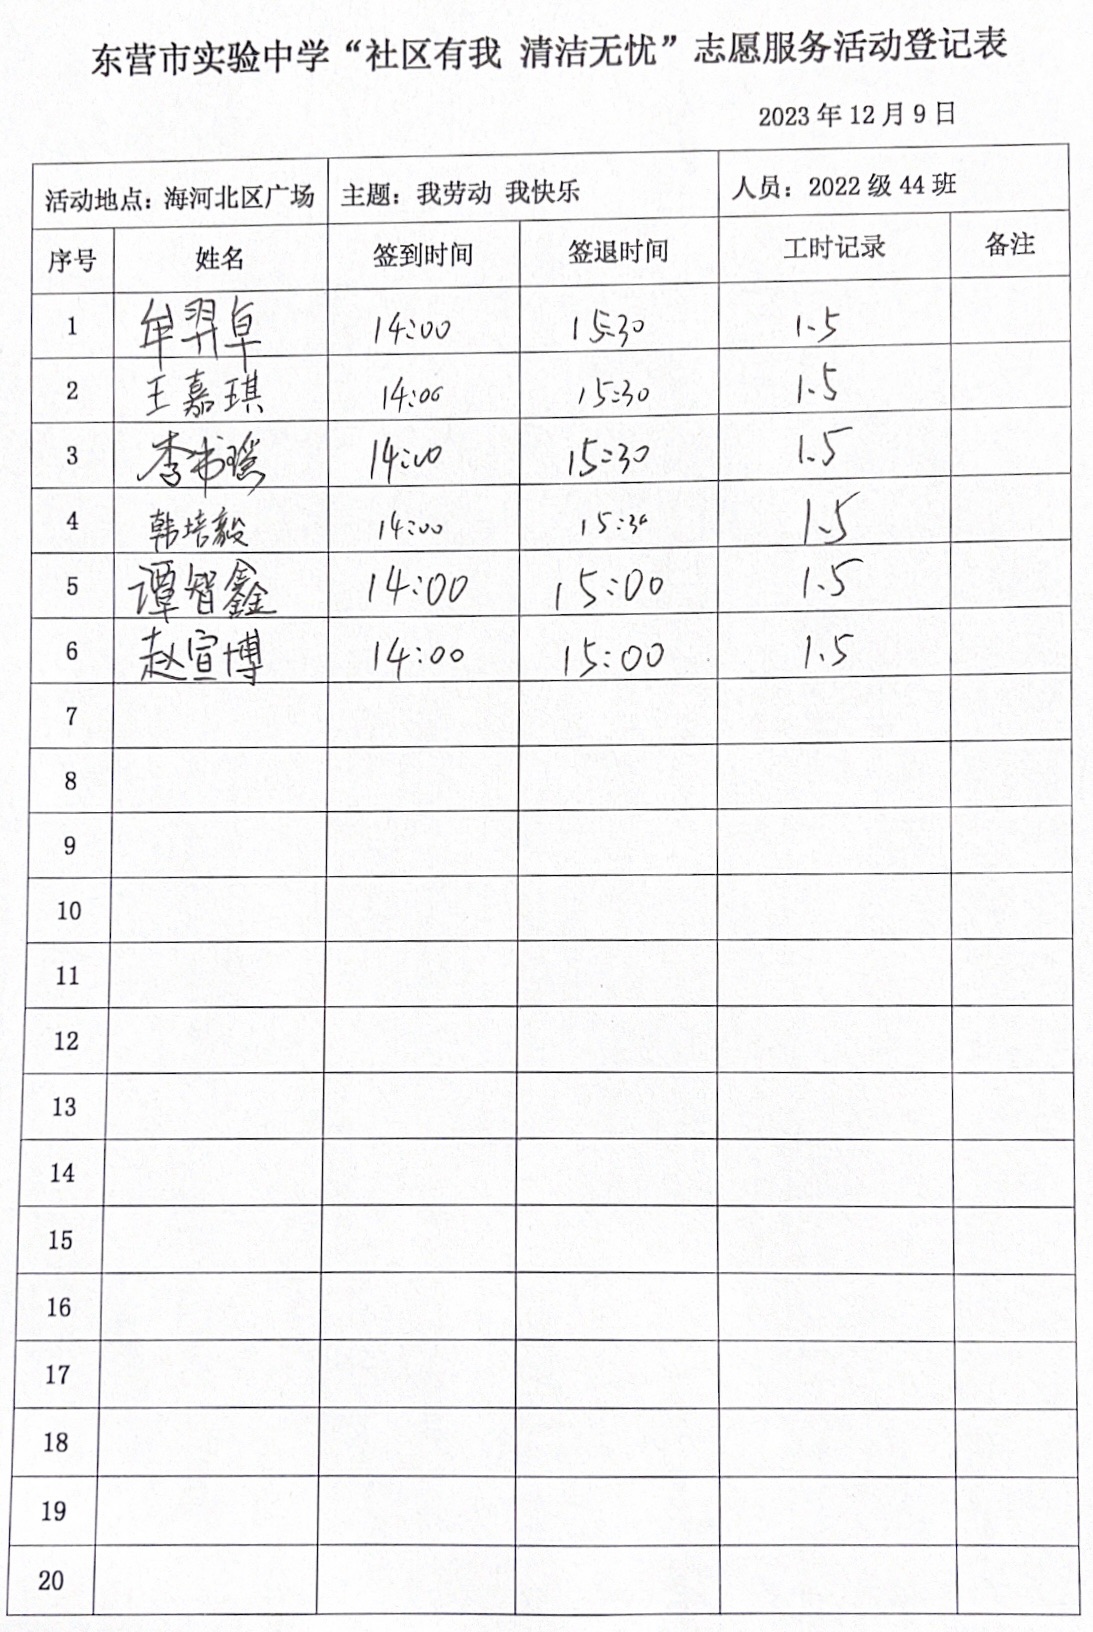 东营市实验中学“社区有我 清洁无忧”志愿服务活动登记表
2023 年 12 月 9 日
活动地点：海河北区广场 主题：我劳动 我快乐 人员：2022 级 44 班
序号 姓名 签到时间 签退时间 工时记录 备注
1 牟羿卓 14:00 15:30 1.5
2 王嘉琪 14:00 15:30 1.5
3 李书瑶 14:00 15:30 1.5
4 韩培毅 14:00 15:30 1.5
5 谭智鑫 14:00 15:00 1.5
6 赵宣博 14:00 15:00 1.5
7
8
9
10
11
12
13
14
15
16
17
18
19
20